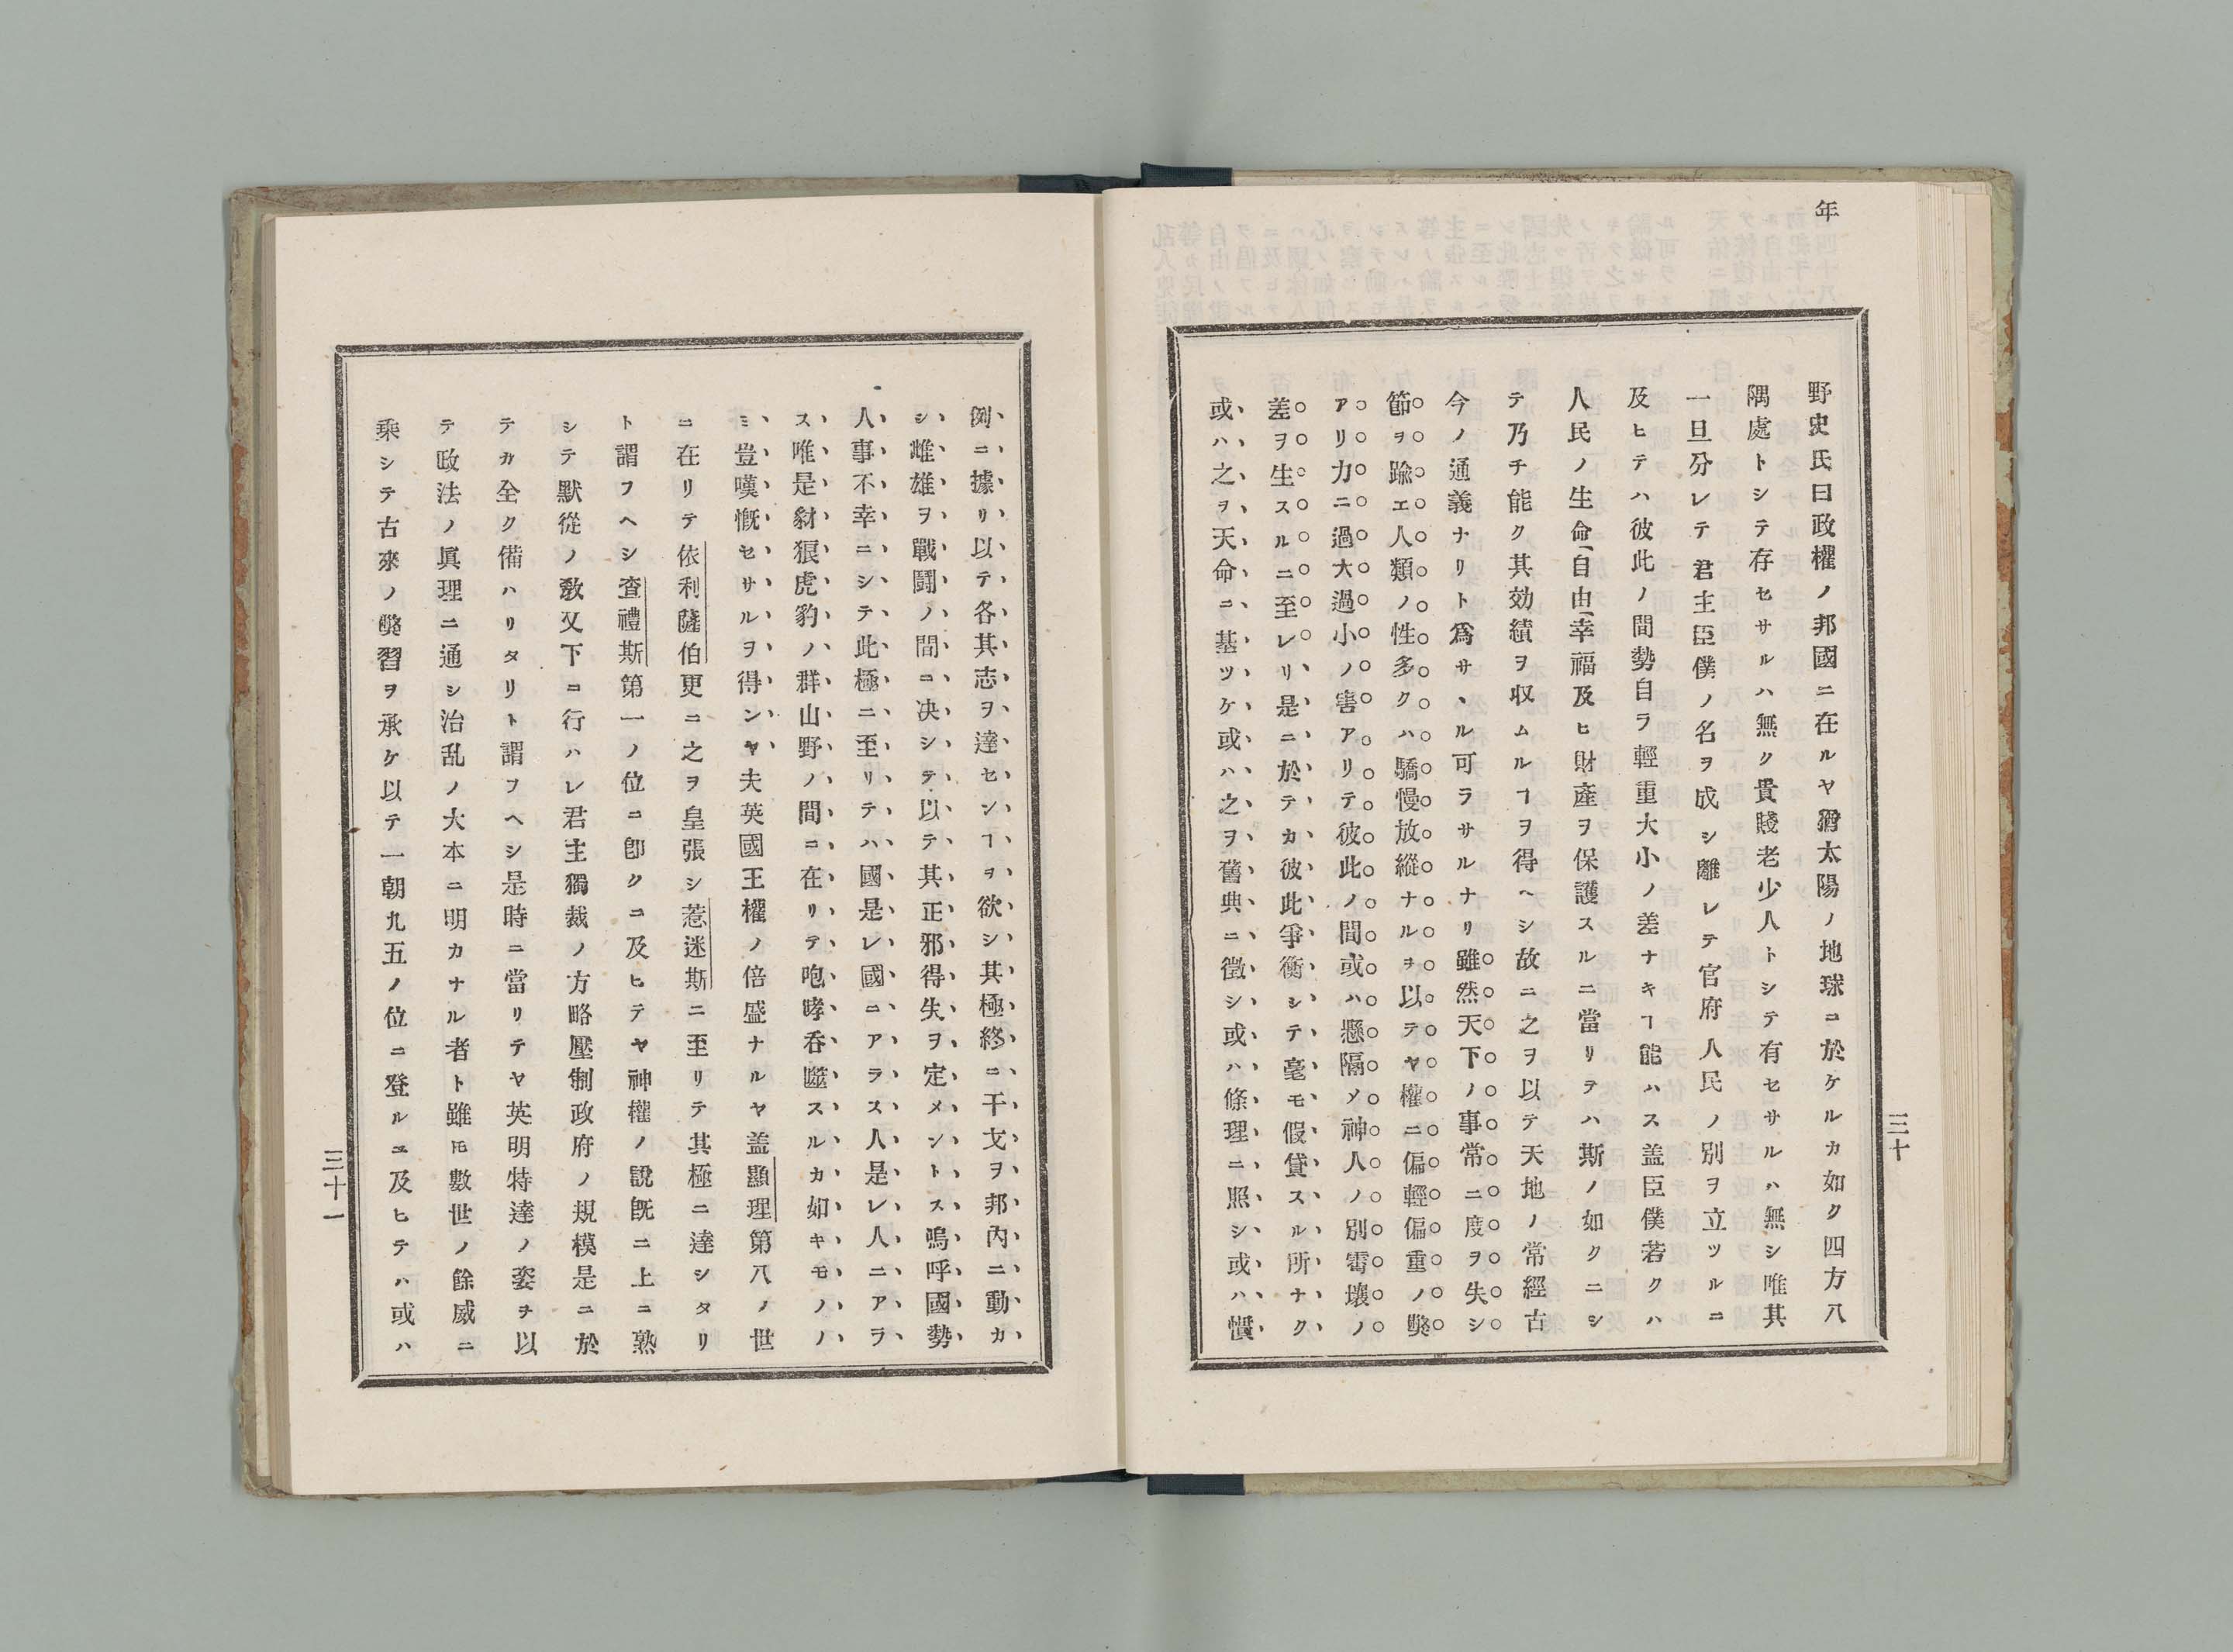 年
野史氏曰政權ノ邦國ニ在ルヤ猶太陽ノ地球ニ於ケルカ如ク四方八
隅處トシテ存セサルハ無ク貴賤老少人トシテ有セサルハ無シ唯其
一旦分レテ君主臣僕ノ名ヲ成シ離レテ官府人民ノ別ヲ立ツルニ
及ヒテハ彼此ノ間勢自ラ輕重大小ノ差ナキヿ能ハス盖臣僕若クハ
人民ノ生命自由幸福及ヒ財產ヲ保護スルニ當リテハ斯ノ如クニシ
テ乃チ能ク其効績ヲ収ムルヿヲ得ヘシ故ニ之ヲ以テ天地ノ常經古
今ノ通義ナリト爲サヽル可ラサルナリ雖然天下ノ事常ニ度ヲ失シ
節ヲ踰エ人類ノ性多クハ驕慢放縱ナルヲ以テヤ權ニ偏輕偏重ノ弊
アリ力ニ過大過小ノ害アリテ彼此ノ間或ハ懸隔メ神人ノ別霄壤ノ
差ヲ生スルニ至レリ是ニ於テカ彼此爭衡シテ毫モ假貸スル所ナク
或ハ之ヲ天命ニ基ツケ或ハ之ヲ舊典ニ徵シ或ハ條理ニ照シ或ハ慣
三十
例ニ據リ以テ各其志ヲ達センヿヲ欲シ其極終ニ干戈ヲ邦內ニ動カ
シ雌雄ヲ戰鬪ノ間ニ决シテ以テ其正邪得失ヲ定メントス嗚呼國勢
人事不幸ニシテ此極ニ至リテハ國是レ國ニアラス人是レ人ニアラ
ス唯是豺狼虎豹ノ群山野ノ間ニ在リテ咆哮呑噬スルカ如キモノノ
ミ豈嘆慨セサルヲ得ンヤ夫英國王權ノ倍盛ナルヤ盖顯理第八ノ世
ニ在リテ依利薩伯更ニ之ヲ皇張シ惹迷斯ニ至リテ其極ニ達シタリ
ト謂フヘシ査禮斯第一ノ位ニ卽クニ及ヒテヤ神權ノ說旣ニ上ニ熟
シテ默從ノ敎又下ニ行ハレ君主獨裁ノ方略壓制政府ノ規模是ニ於
テカ全ク備ハリタリト謂フヘシ是時ニ當リテヤ英明特達ノ姿ヲ以
テ政法ノ眞理ニ通シ治乱ノ大本ニ明カナル者ト雖𪜈數世ノ餘威ニ
乘シテ古來ノ弊習ヲ承ケ以テ一朝九五ノ位ニ登ルニ及ヒテハ或ハ
三十一